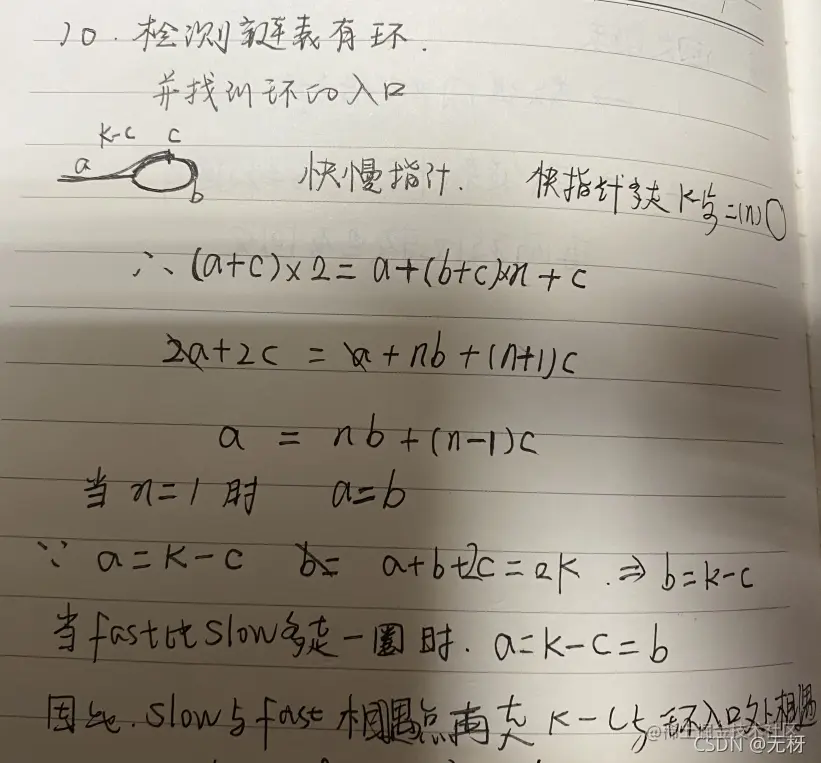 10. 检测链表有环.
并找到环的入口
K-c c
a
b
快慢指针. 快指针多走K步=(n)
∴ (a+c)×2 = a+(b+c)×n + c
2a+2c = a + nb + (n+1)c
a = nb + (n-1)c
当 n=1 时 a=b
∵ a = K-c b= a+b+2c=2K. ⇒ b=k-c
当fast比slow多走一圈时. a=K-c=b
因此. slow与fast相遇点再走 K-c步 环入口处相遇
@稀土掘金技术社区
CSDN @无枒